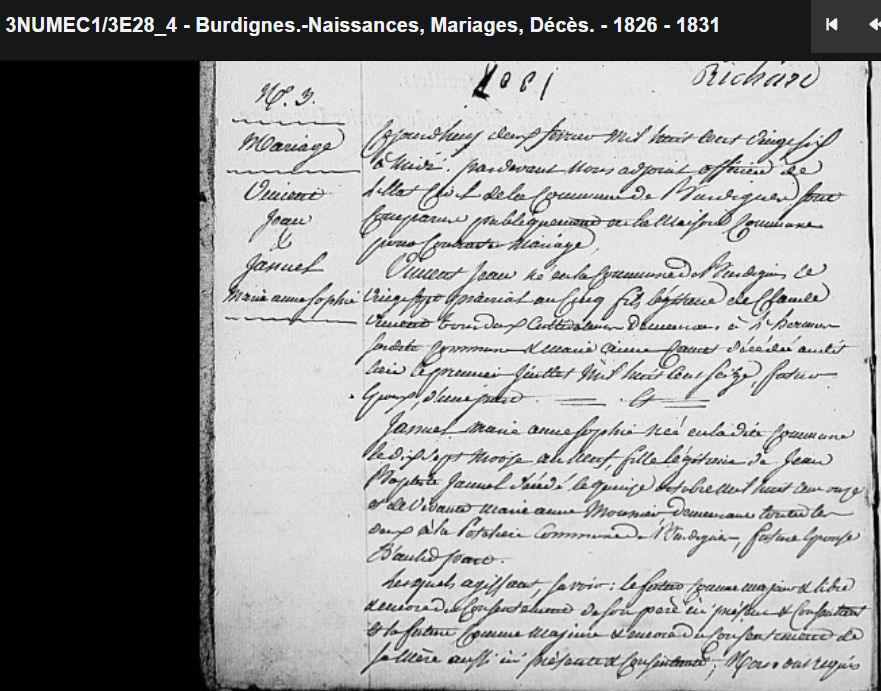 3NUMEC1/3E28_4 - Burdignes.-Naissances, Mariages, Décès. - 1826 - 1831
Richard
N.º 3.
Mariage
Vincent
Jean
&
Januel
Marie anne Sophie
Cejourdhuy deux fevrier mil huit cent vingt six
à midi. pardevant nous adjoint officier de
l'Etat Civil de la Commune de Burdignes, sont
Comparus publiquement en la Maison Commune
pour Contracter Mariage,
Vincent Jean né en la Commune de Burdignes le
vingt sept prairial an Cinq fils légitime de Claude
Vincent tous deux Cultivateurs demeurans à
Commune & marie décédée audit
lieu le premier Juillet Mil huit Cent Seize, futur
Epoux, d'une part.
Januel marie anne Sophie née en ladite Commune
le dix sept an neuf, fille légitime de Jean
Baptiste Januel décédé le quinze octobre mil huit cent onze
et de vivante marie anne demeurans toutes les
deux à la Commune de Burdignes, future Epouse
D'autre part.
Lesquels agissant, savoir: le futur comme majeur & libre
& encore du Consentement de son père ici présent & Consentant
& la future Comme Majeure & encore du Consentement de
sa Mère aussi ici présente & Consentante; Nous ont requis